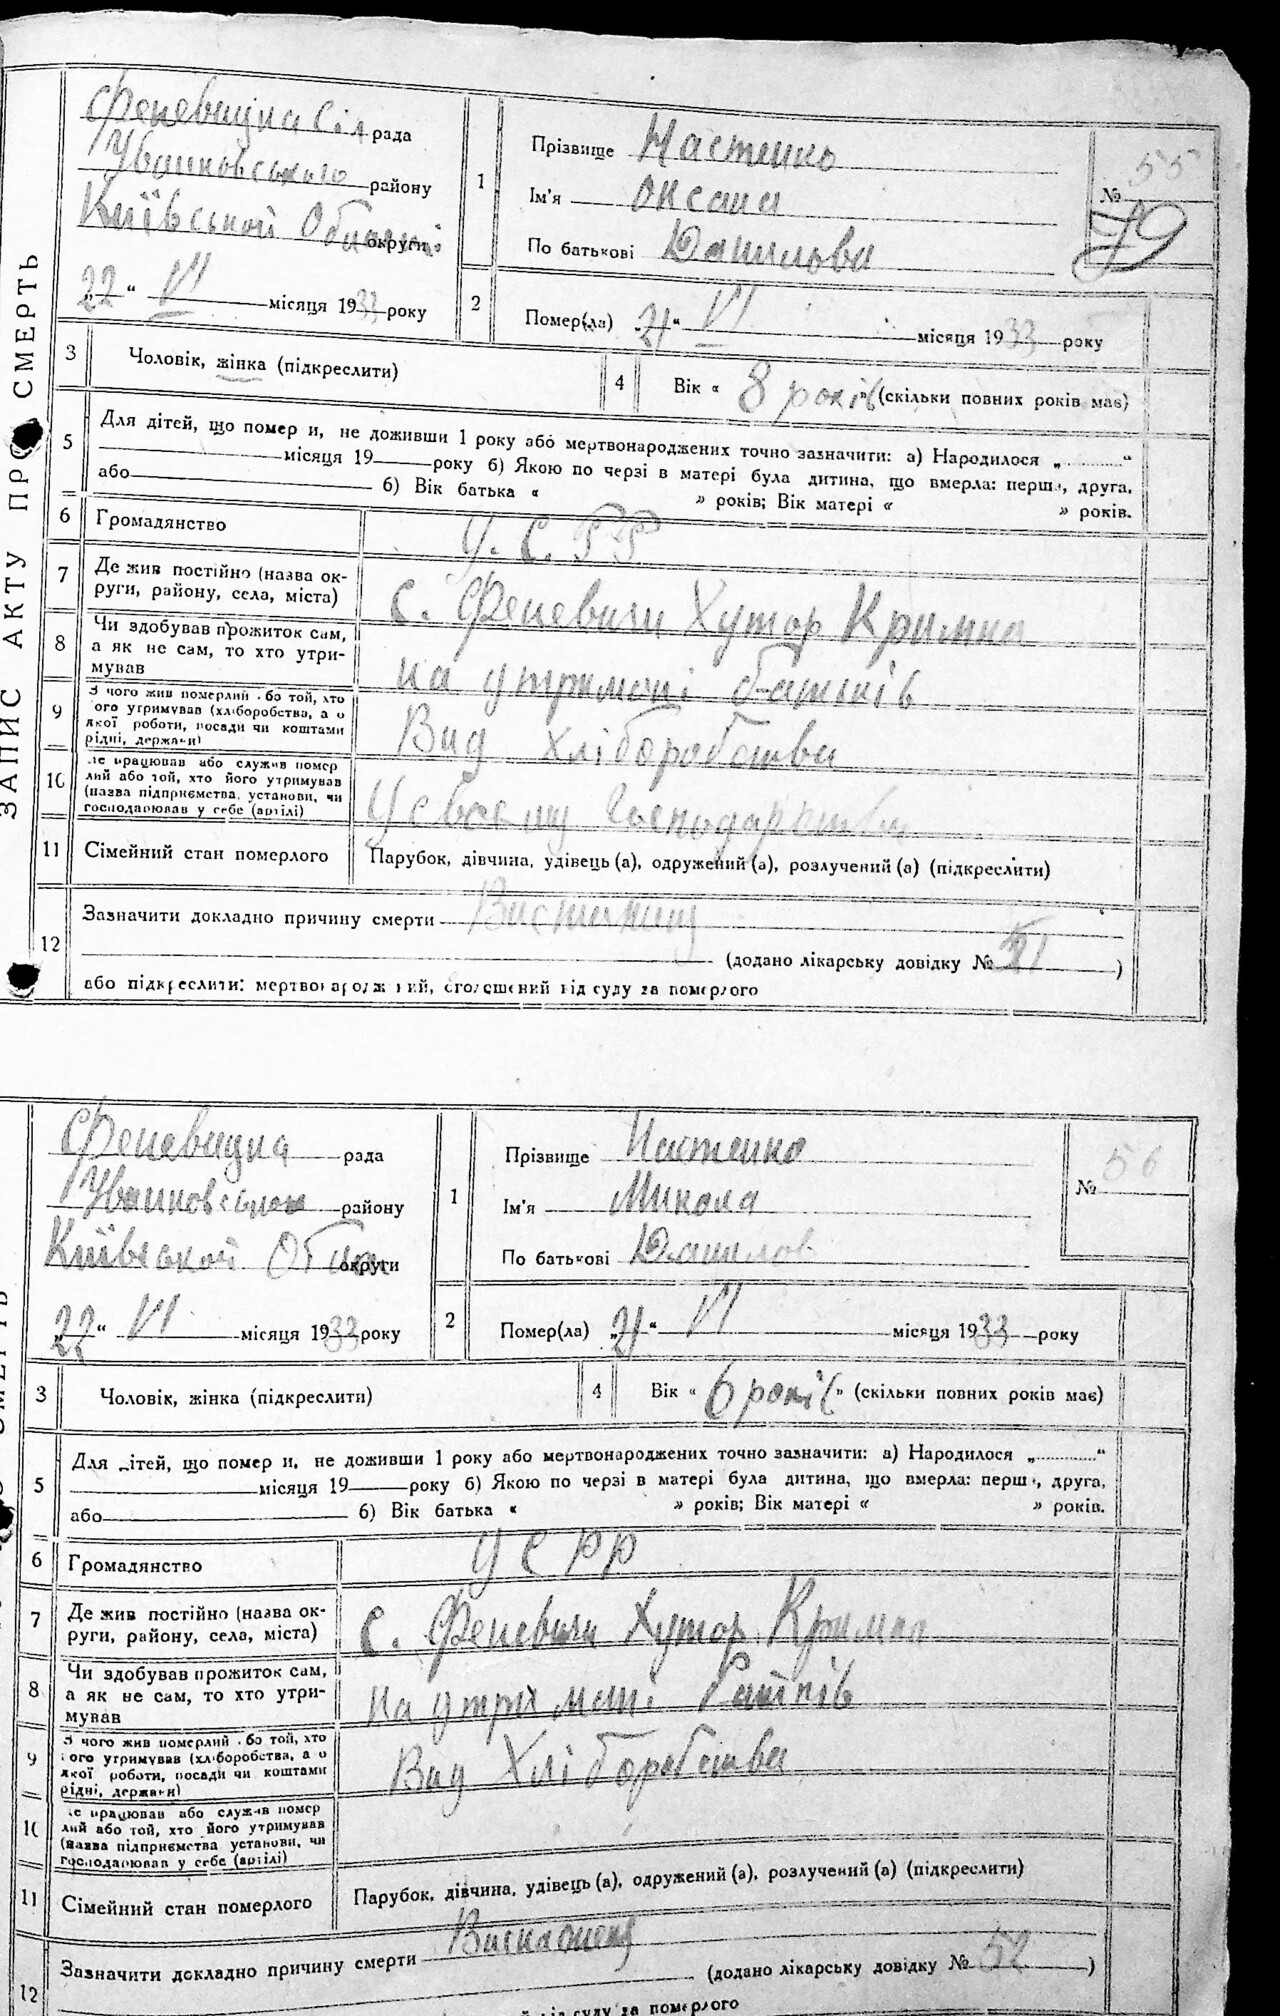 ЗАПИС АКТУ ПРО СМЕРТЬ
Феневицка Сіл рада
району
Київської Області округи
„22“ VI місяця 1933 року
1
Прізвище Настенко
Ім'я Оксана
По батькові Данилова
№ 55
79
2
Помер(ла) „21“ VI місяця 1933 року
3 Чоловік, жінка (підкреслити)
4 Вік « 8 років » (скільки повних років має)
5 Для дітей, що помер и, не доживши 1 року або мертвонароджених точно зазначити: а) Народилося „ “
місяця 19 року б) Якою по черзі в матері була дитина, що вмерла: перш , друга,
або б) Вік батька « » років; Вік матері « » років.
6 Громадянство У.С.РР
7 Де жив постійно (назва ок-
руги, району, села, міста) с. Феневичи Хутор Кримка
8 Чи здобував прожиток сам,
а як не сам, то хто утри-
мував на утримані батьків
9 З чого жив померлий бо той, хто
ого утримував (хліборобства, а о
якої роботи, посади чи коштами
рідні, держави) Вид хліборобства
10 е працював або служив помер
лий або той, хто його утримував
(назва підприємства, установи, чи
господарював у себе (артілі) У своему господарстві
11 Сімейний стан померлого Парубок, дівчина, удівець (а), одружений (а), розлучений (а) (підкреслити)
12 Зазначити докладно причину смерти
(додано лікарську довідку № 51 )
або підкреслити: мертвонароджений, оголошений від суду за померлого
Феневицка рада
району
Київської Облас округи
„22“ VI місяця 1933 року
1
Прізвище Настенко
Ім'я Микола
По батькові Данилов
№ 56
2
Помер(ла) „21“ VI місяця 1933 року
3 Чоловік, жінка (підкреслити)
4 Вік « 6 років » (скільки повних років має)
5 Для дітей, що помер и, не доживши 1 року або мертвонароджених точно зазначити: а) Народилося „ “
місяця 19 року б) Якою по черзі в матері була дитина, що вмерла: перш , друга,
або б) Вік батька « » років; Вік матері « » років.
6 Громадянство УСРР
7 Де жив постійно (назва ок-
руги, району, села, міста) с. Феневичи Хутор Кримка
8 Чи здобував прожиток сам,
а як не сам, то хто утри-
мував на утримані батьків
9 З чого жив померлий бо той, хто
ого утримував (хліборобства, а о
якої роботи, посади чи коштами
рідні, держави) Вид Хліборобства
10 е працював або служив помер
лий або той, хто його утримував
(назва підприємства, установи, чи
господарював у себе (артілі)
11 Сімейний стан померлого Парубок, дівчина, удівець (а), одружений (а), розлучений (а) (підкреслити)
12 Зазначити докладно причину смерти
(додано лікарську довідку № 52 )
від суду за померлого